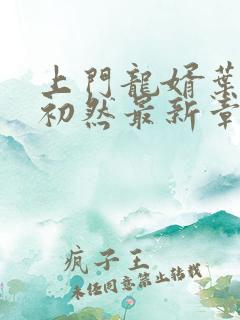 上門龍婿葉
初然最新章
疯子王
未经同意禁止转载